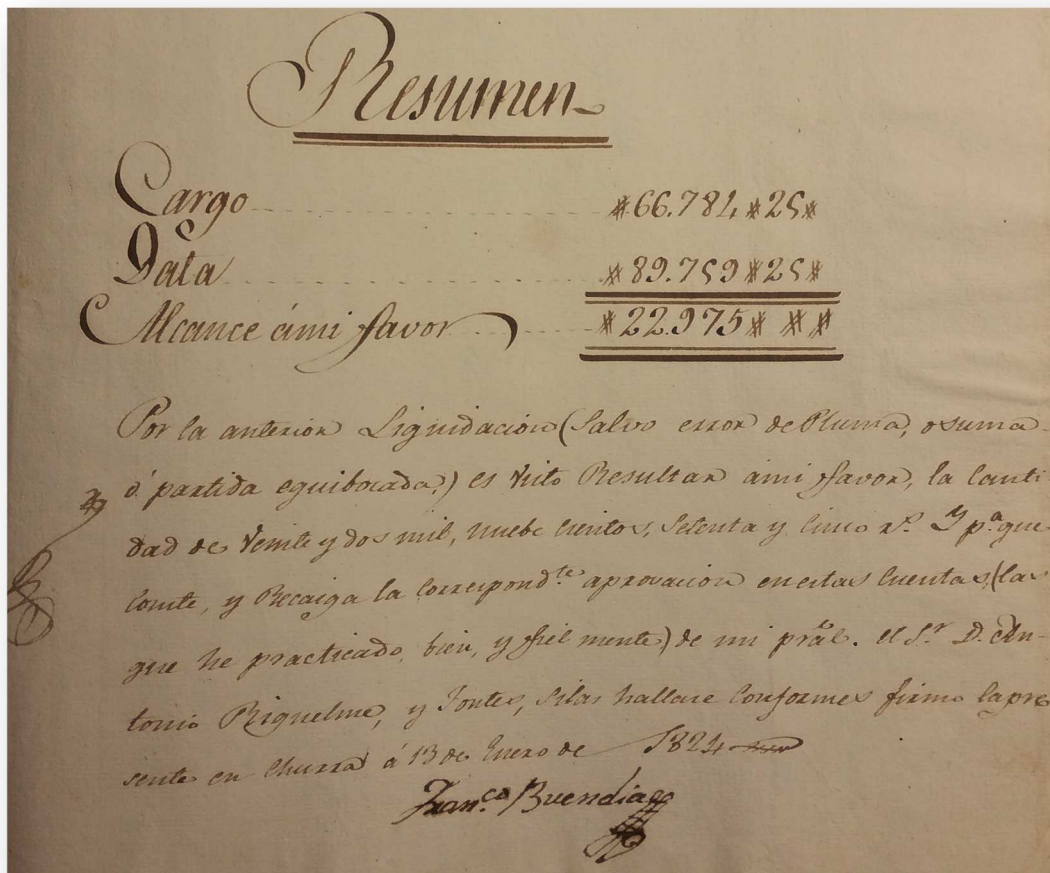 Resumen
Cargo #66.784#25#
Data #89.759#25#
Alcance á mi favor #22.975# ##
Por la anterior Liquidacion (Salvo error de Pluma, o suma
ó partida equibocada,) es visto Resultar á mi favor, la canti
dad de Veinte y dos mil, nuebe cientos, setenta y cinco rs. Y pa. que
conste, y Recaiga la correspondte. aprovacion en estas cuentas (las
que he practicado, bien, y fiel mente) de mi pral. el Sr. D. An-
tonio Riquelme, y Fontes, si las hallare conformes firmo la pre
sente en Churra á 13 de Enero de 1824
Franco. Buendia